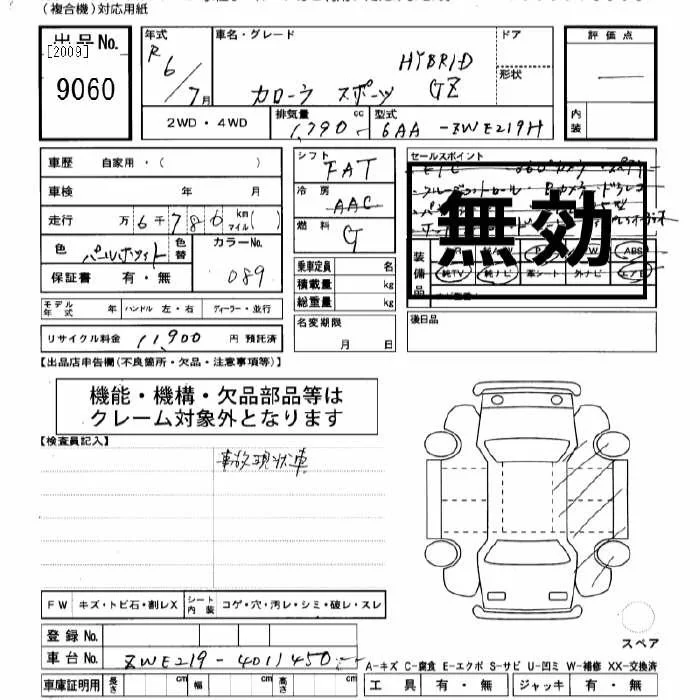 (複合機)対応用紙
出品No. [2009] 9060
年式 R6/7月
車名・グレード HYBRID
カローラ スポーツ GZ
ドア
形状
評価点 —
内装
2WD・4WD
排気量 1,790 cc
型式 6AA-ZWE219H
車歴 自家用・( )
車検 年 月
走行 万6千786 km マイル( )
色 パールホワイト 色替 カラーNo. 089
保証書 有・無
モデル年式 年 ハンドル 左・右 ディーラー・並行
リサイクル料金 11,900 円 預託済
シフト FAT
冷房 AAC
燃料 G
乗車定員 名
積載量 kg
総重量 kg
名変期限 月 日
セールスポイント
無効
装備品 ABS
純TV 純ナビ 革シート 外ナビ エアB
後日品
【出品店申告欄(不良箇所・欠品・注意事項等)】
機能・機構・欠品部品等は
クレーム対象外となります
【検査員記入】
事故現状車
FW キズ・トビ石・割レX シート内装 コゲ・穴・汚レ・シミ・破レ・スレ
登録No.
車台No. ZWE219-4011450
車庫証明用 長さ cm 幅 cm 高さ cm
スペア
A-キズ C-腐食 E-エクボ S-サビ U-凹ミ W-補修 XX-交換済
工具 有・無 ジャッキ 有・無